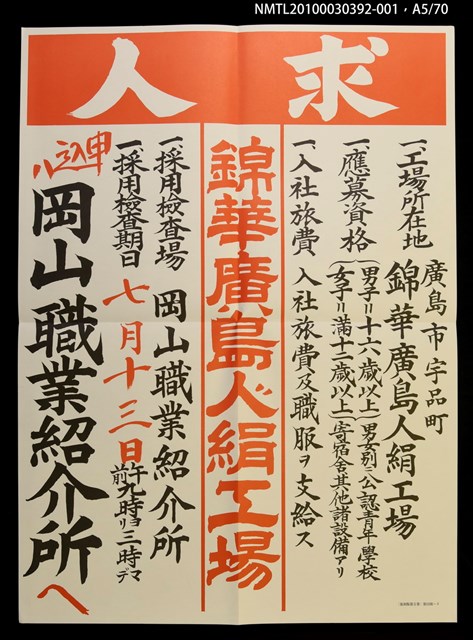 NMTL20100030392-001，A5/70
求人
一、工場所在地 廣島市宇品町
錦華廣島人絹工場
一、應募資格
男子ハ十六歳以上
女子ハ満十二歳以上
男女別ニ公認青年學校
寄宿舎其他諸設備アリ
一、入社旅費 入社旅費及職服ヲ支給ス
錦華廣島人絹工場
一、採用檢査場 岡山職業紹介所
一、採用檢査期日 七月十三日 午前九時ヨリ三時マデ
申込ハ
岡山職業紹介所へ